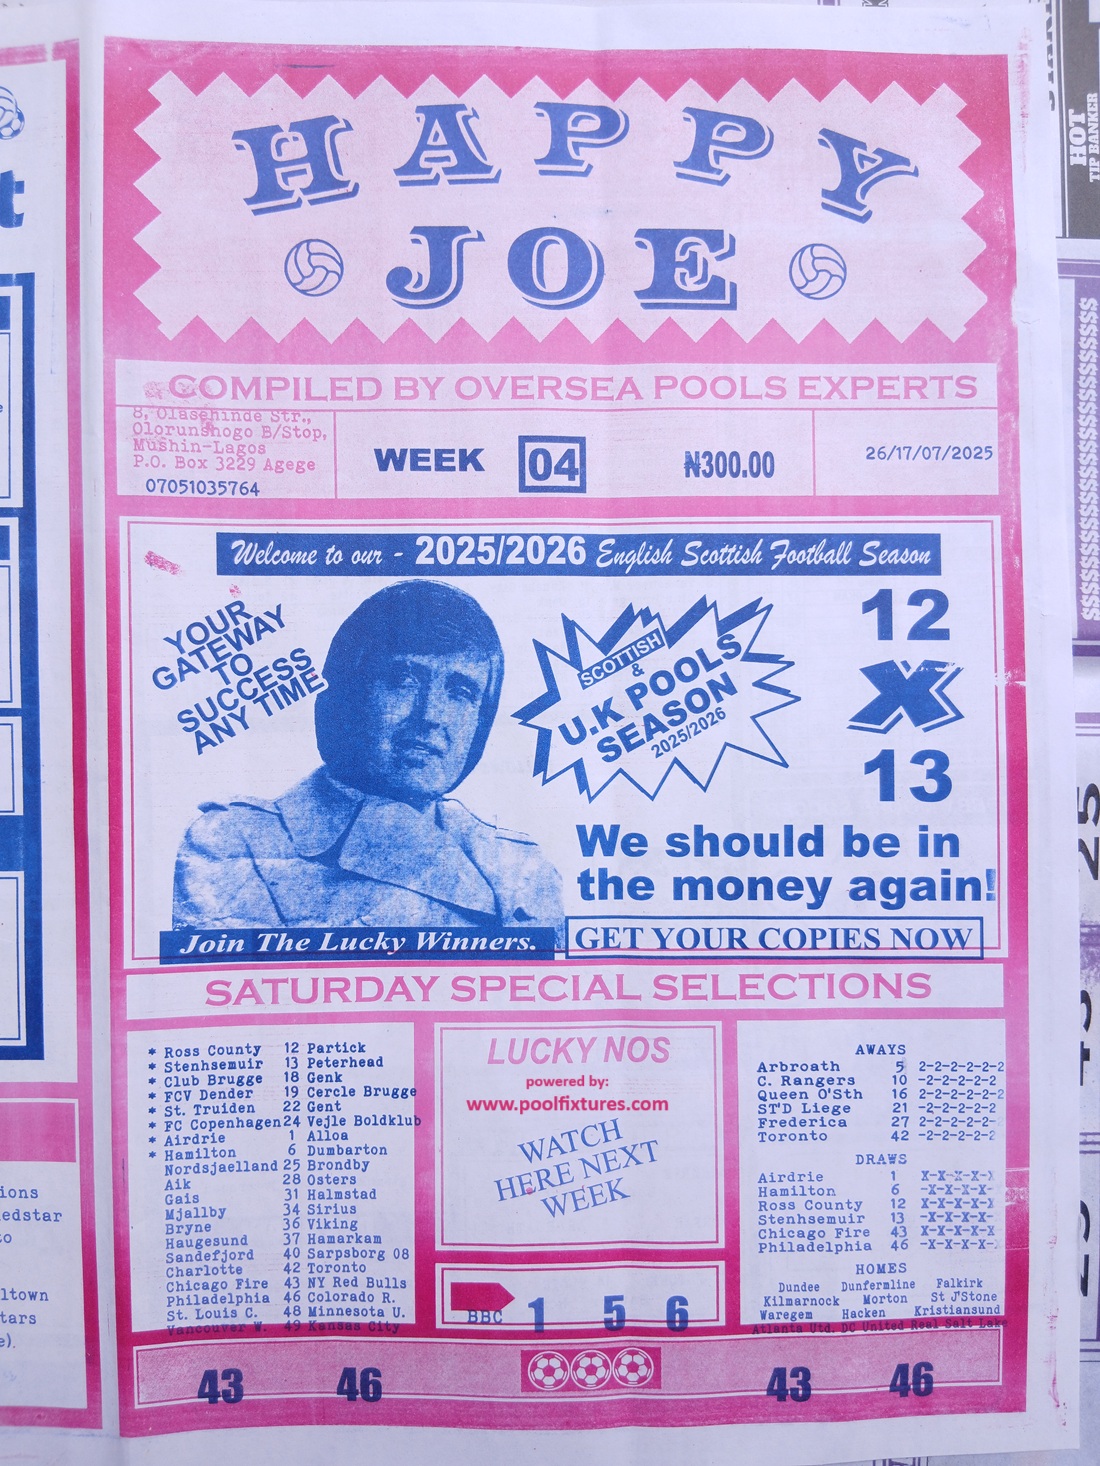 HAPPY
JOE
COMPILED BY OVERSEA POOLS EXPERTS
8, Olasehinde Str.,
Olorunshogo B/Stop,
Mushin-Lagos
P.O. Box 3229 Agege
07051035764
WEEK 04
₦300.00
26/17/07/2025
Welcome to our - 2025/2026 English Scottish Football Season
YOUR
GATEWAY
TO
SUCCESS
ANY TIME
SCOTTISH
&
U.K POOLS
SEASON
2025/2026
12
X
13
We should be in
the money again!
Join The Lucky Winners.
GET YOUR COPIES NOW
SATURDAY SPECIAL SELECTIONS
* Ross County 12 Partick
* Stenhsemuir 13 Peterhead
* Club Brugge 18 Genk
* FCV Dender 19 Cercle Brugge
* St. Truiden 22 Gent
* FC Copenhagen 24 Vejle Boldklub
* Airdrie 1 Alloa
* Hamilton 6 Dumbarton
Nordsjaelland 25 Brondby
Aik 28 Osters
Gais 31 Halmstad
Mjallby 34 Sirius
Bryne 36 Viking
Haugesund 37 Hamarkam
Sandefjord 40 Sarpsborg 08
Charlotte 42 Toronto
Chicago Fire 43 NY Red Bulls
Philadelphia 46 Colorado R.
St. Louis C. 48 Minnesota U.
Vancouver W. 49 Kansas City
LUCKY NOS
powered by:
www.poolfixtures.com
WATCH
HERE NEXT
WEEK
BBC 1 5 6
AWAYS
Arbroath 5 2-2-2-2-2-2
C. Rangers 10 -2-2-2-2-2
Queen O'Sth 16 2-2-2-2-2-2
ST'D Liege 21 -2-2-2-2-2
Frederica 27 2-2-2-2-2-2
Toronto 42 -2-2-2-2-2
DRAWS
Airdrie 1 X-X-X-X-X
Hamilton 6 -X-X-X-X-
Ross County 12 X-X-X-X-X
Stenhsemuir 13 -X-X-X-X-
Chicago Fire 43 X-X-X-X-X
Philadelphia 46 -X-X-X-X-
HOMES
Dundee Dunfermline Falkirk
Kilmarnock Morton St J'Stone
Waregem Hacken Kristiansund
Atlanta Utd. DC United Real Salt Lake
43 46
43 46
t
ions
edstar
to
ltown
tars
e).
HOT
TIP BANKER
$$$$$$$$$$$$$$$$$$$$$$$
25